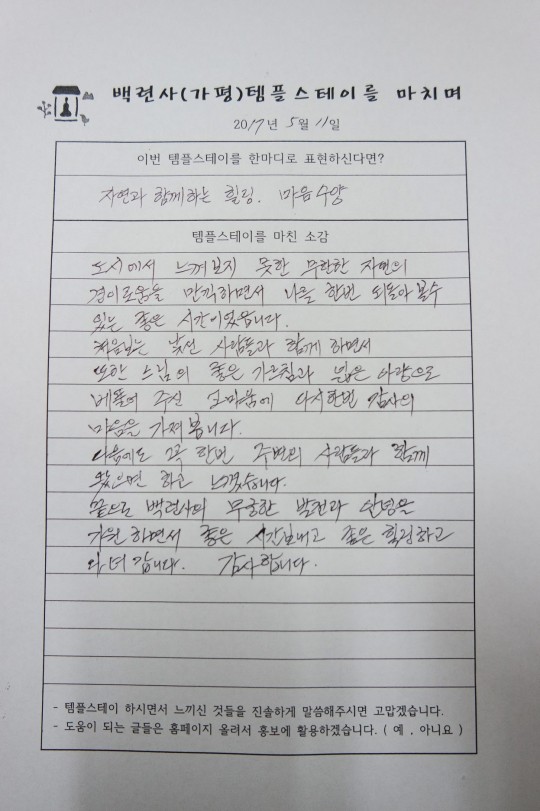 백련사(가평)템플스테이를 마치며
2017년 5월 11일
이번 템플스테이를 한마디로 표현하신다면?
자연과 함께하는 힐링. 마음수양
템플스테이를 마친 소감
도시에서 느껴보지 못한 무한한 자연의
경이로움을 만끽하면서 나를 한번 되돌아 볼수
있는 좋은 시간이었읍니다.
처음보는 낯선 사람들과 함께 하면서
또한 스님의 좋은 가르침과 넓은 아량으로
베풀어 주신 그 마음에 다시한번 감사의
마음을 가져 봅니다.
다음에도 꼭 한번 주변의 사람들과 함께
왔으면 하고 느꼈습니다.
끝으로 백련사의 무궁한 발전과 안녕을
기원 하면서 좋은 시간보내고 좋은 힐링하고
갑니다. 감사합니다.
- 템플스테이 하시면서 느끼신 것들을 진솔하게 말씀해주시면 고맙겠습니다.
- 도움이 되는 글들은 홈페이지 올려서 홍보에 활용하겠습니다. ( 예 . 아니요 )